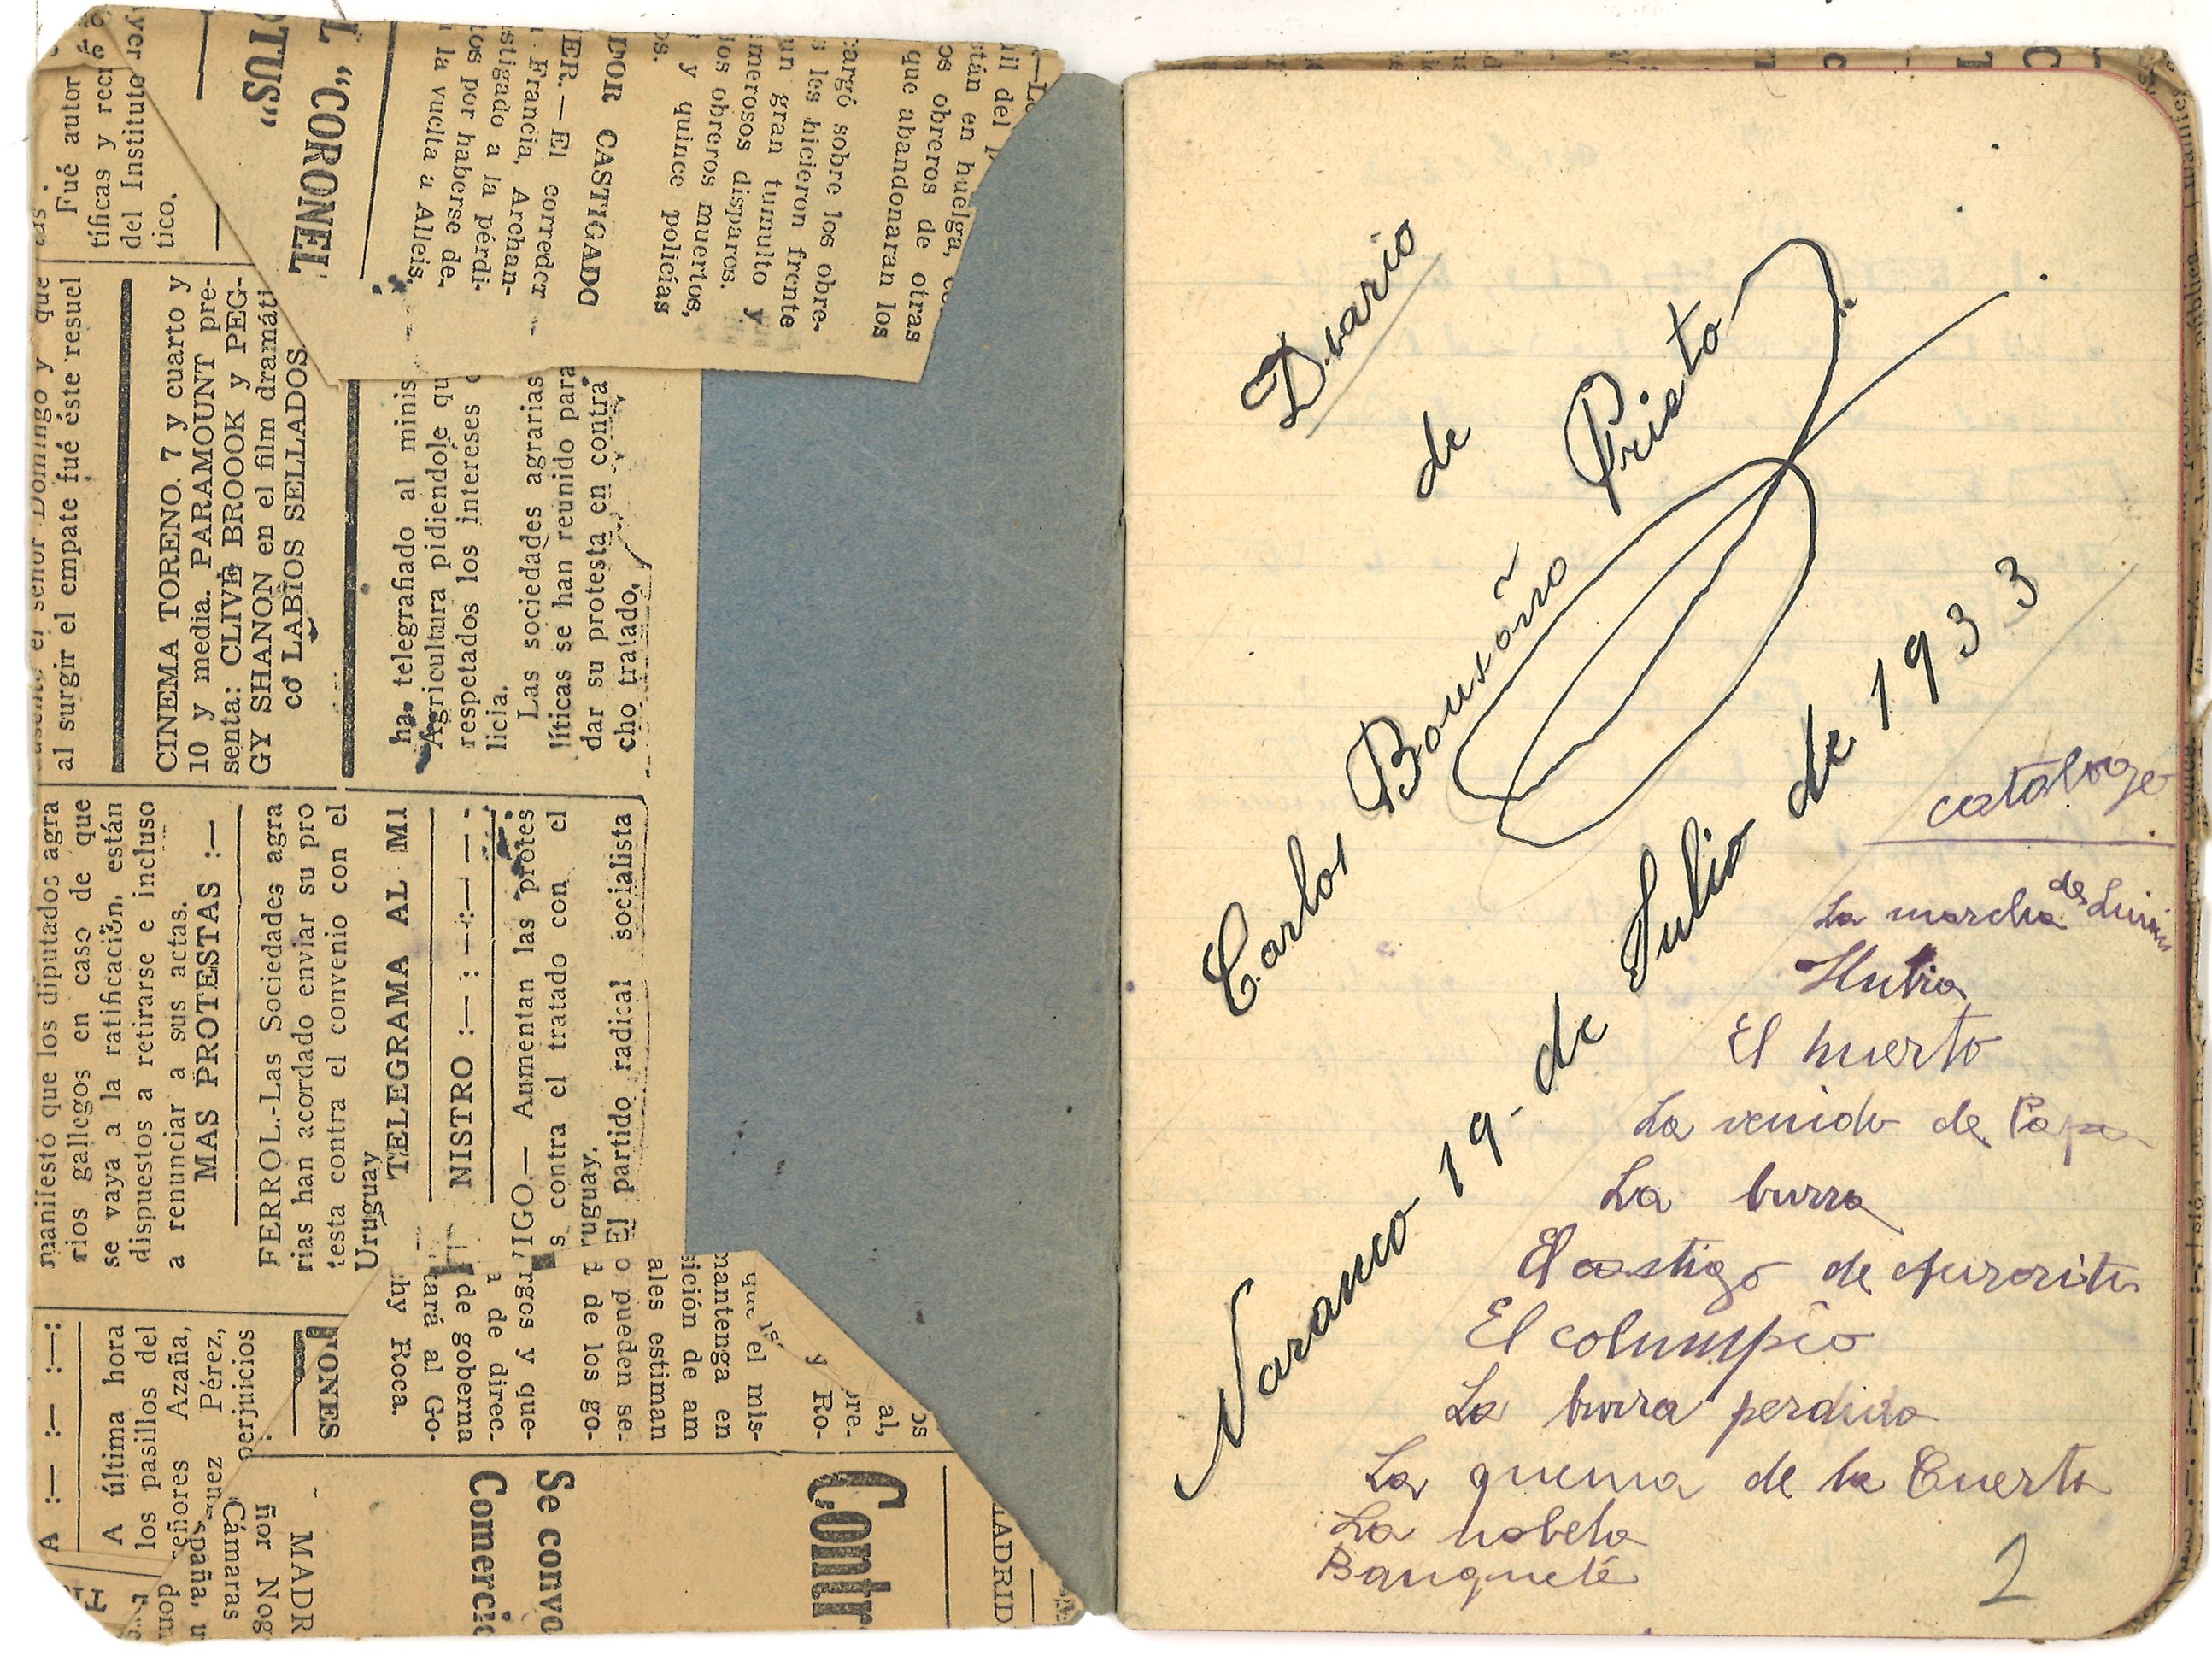 Fué autor
tíficas y recr
del Instituto
tico.
L "CORONEL
OTUS"
al surgir el empate fué éste resuel
CINEMA TORENO. 7 y cuarto y
10 y media. PARAMOUNT pre-
senta: CLIVE BROOOK y PEG-
GY SHANON en el film dramáti
co LABIOS SELLADOS
manifestó que los diputados agra
rios gallegos en caso de que
se vaya a la ratificación, están
dispuestos a retirarse e incluso
a renunciar a sus actas.
MAS PROTESTAS :—
FERROL.-Las Sociedades agra
rias han acordado enviar su pro
testa contra el convenio con el
Uruguay
TELEGRAMA AL MI
NISTRO :— : —:— — -
VIGO.— Aumentan las protes
s contra el tratado con el
ruguay.
El partido radical socialista
ha telegrafiado al minis
Agricultura pidiendole qu
respetados los intereses
licia.
Las sociedades agrarias
líticas se han reunido para
dar su protesta en contra
cho tratado,
DOR CASTIGADO
ER.—El corredor
Francia, Archan-
stigado a la pérdi-
tos por haberse de-
la vuelta a Alleis,
til del
stán en huelga,
os obreros de otras
que abandonaran los
cargó sobre los obre-
s les hicieron frente
un gran tumulto y
merosos disparos.
los obreros muertos,
y quince policías
os.
A :— :— :— :—:
A última hora
los pasillos del
señores Azaña,
Pérez,
perjuicios
Cámaras
ñor Nog
MADR
NONES
hy Roca.
tará al Go-
de goberna
a de direc-
rgos y que-
de los go-
o pueden se-
ales estiman
sición de am
mantenga en
que el mis-
y Ro-
pre-
al,
os
Comerci
Se convo
Contr
MADRID
Diario
de
Carlos Bousoño Prieto
Naranco 19- de Julio de 1933
catálogo
La marcha de Luisin
Hubia
El huerto
La venida de Papa
La burra
El castigo de
El columpio
La burra perdida
La quema de la Cuerta
La nobela
Banqueté
2